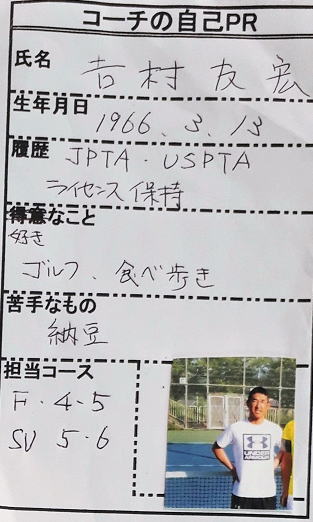 コーチの自己PR
氏名
吉村友宏
生年月日
1966.3.13
履歴
JPTA・USPTA
ライセンス保持
得意なこと
好き
ゴルフ、食べ歩き
苦手なもの
納豆
担当コース
F・4・5
SV 5・6
UNDER ARMOUR